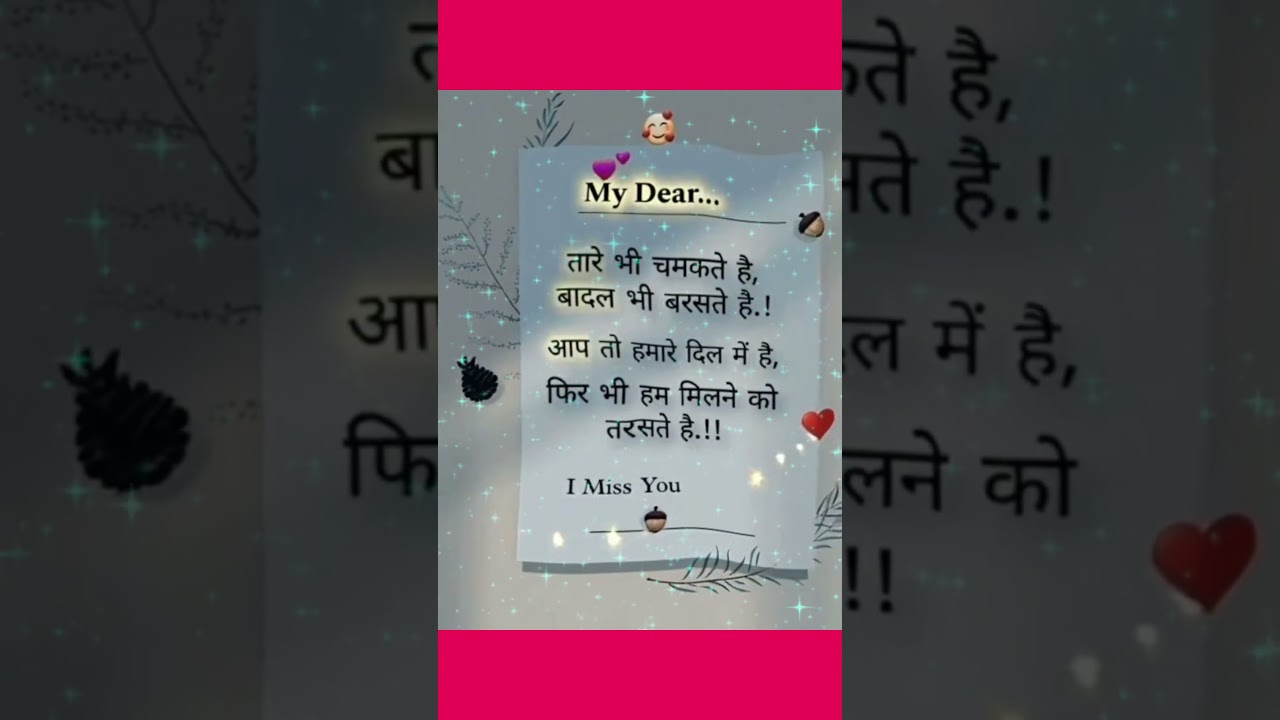 My Dear...
तारे भी चमकते है,
बादल भी बरसते है.!
आप तो हमारे दिल में है,
फिर भी हम मिलने को
तरसते है.!!
I Miss You